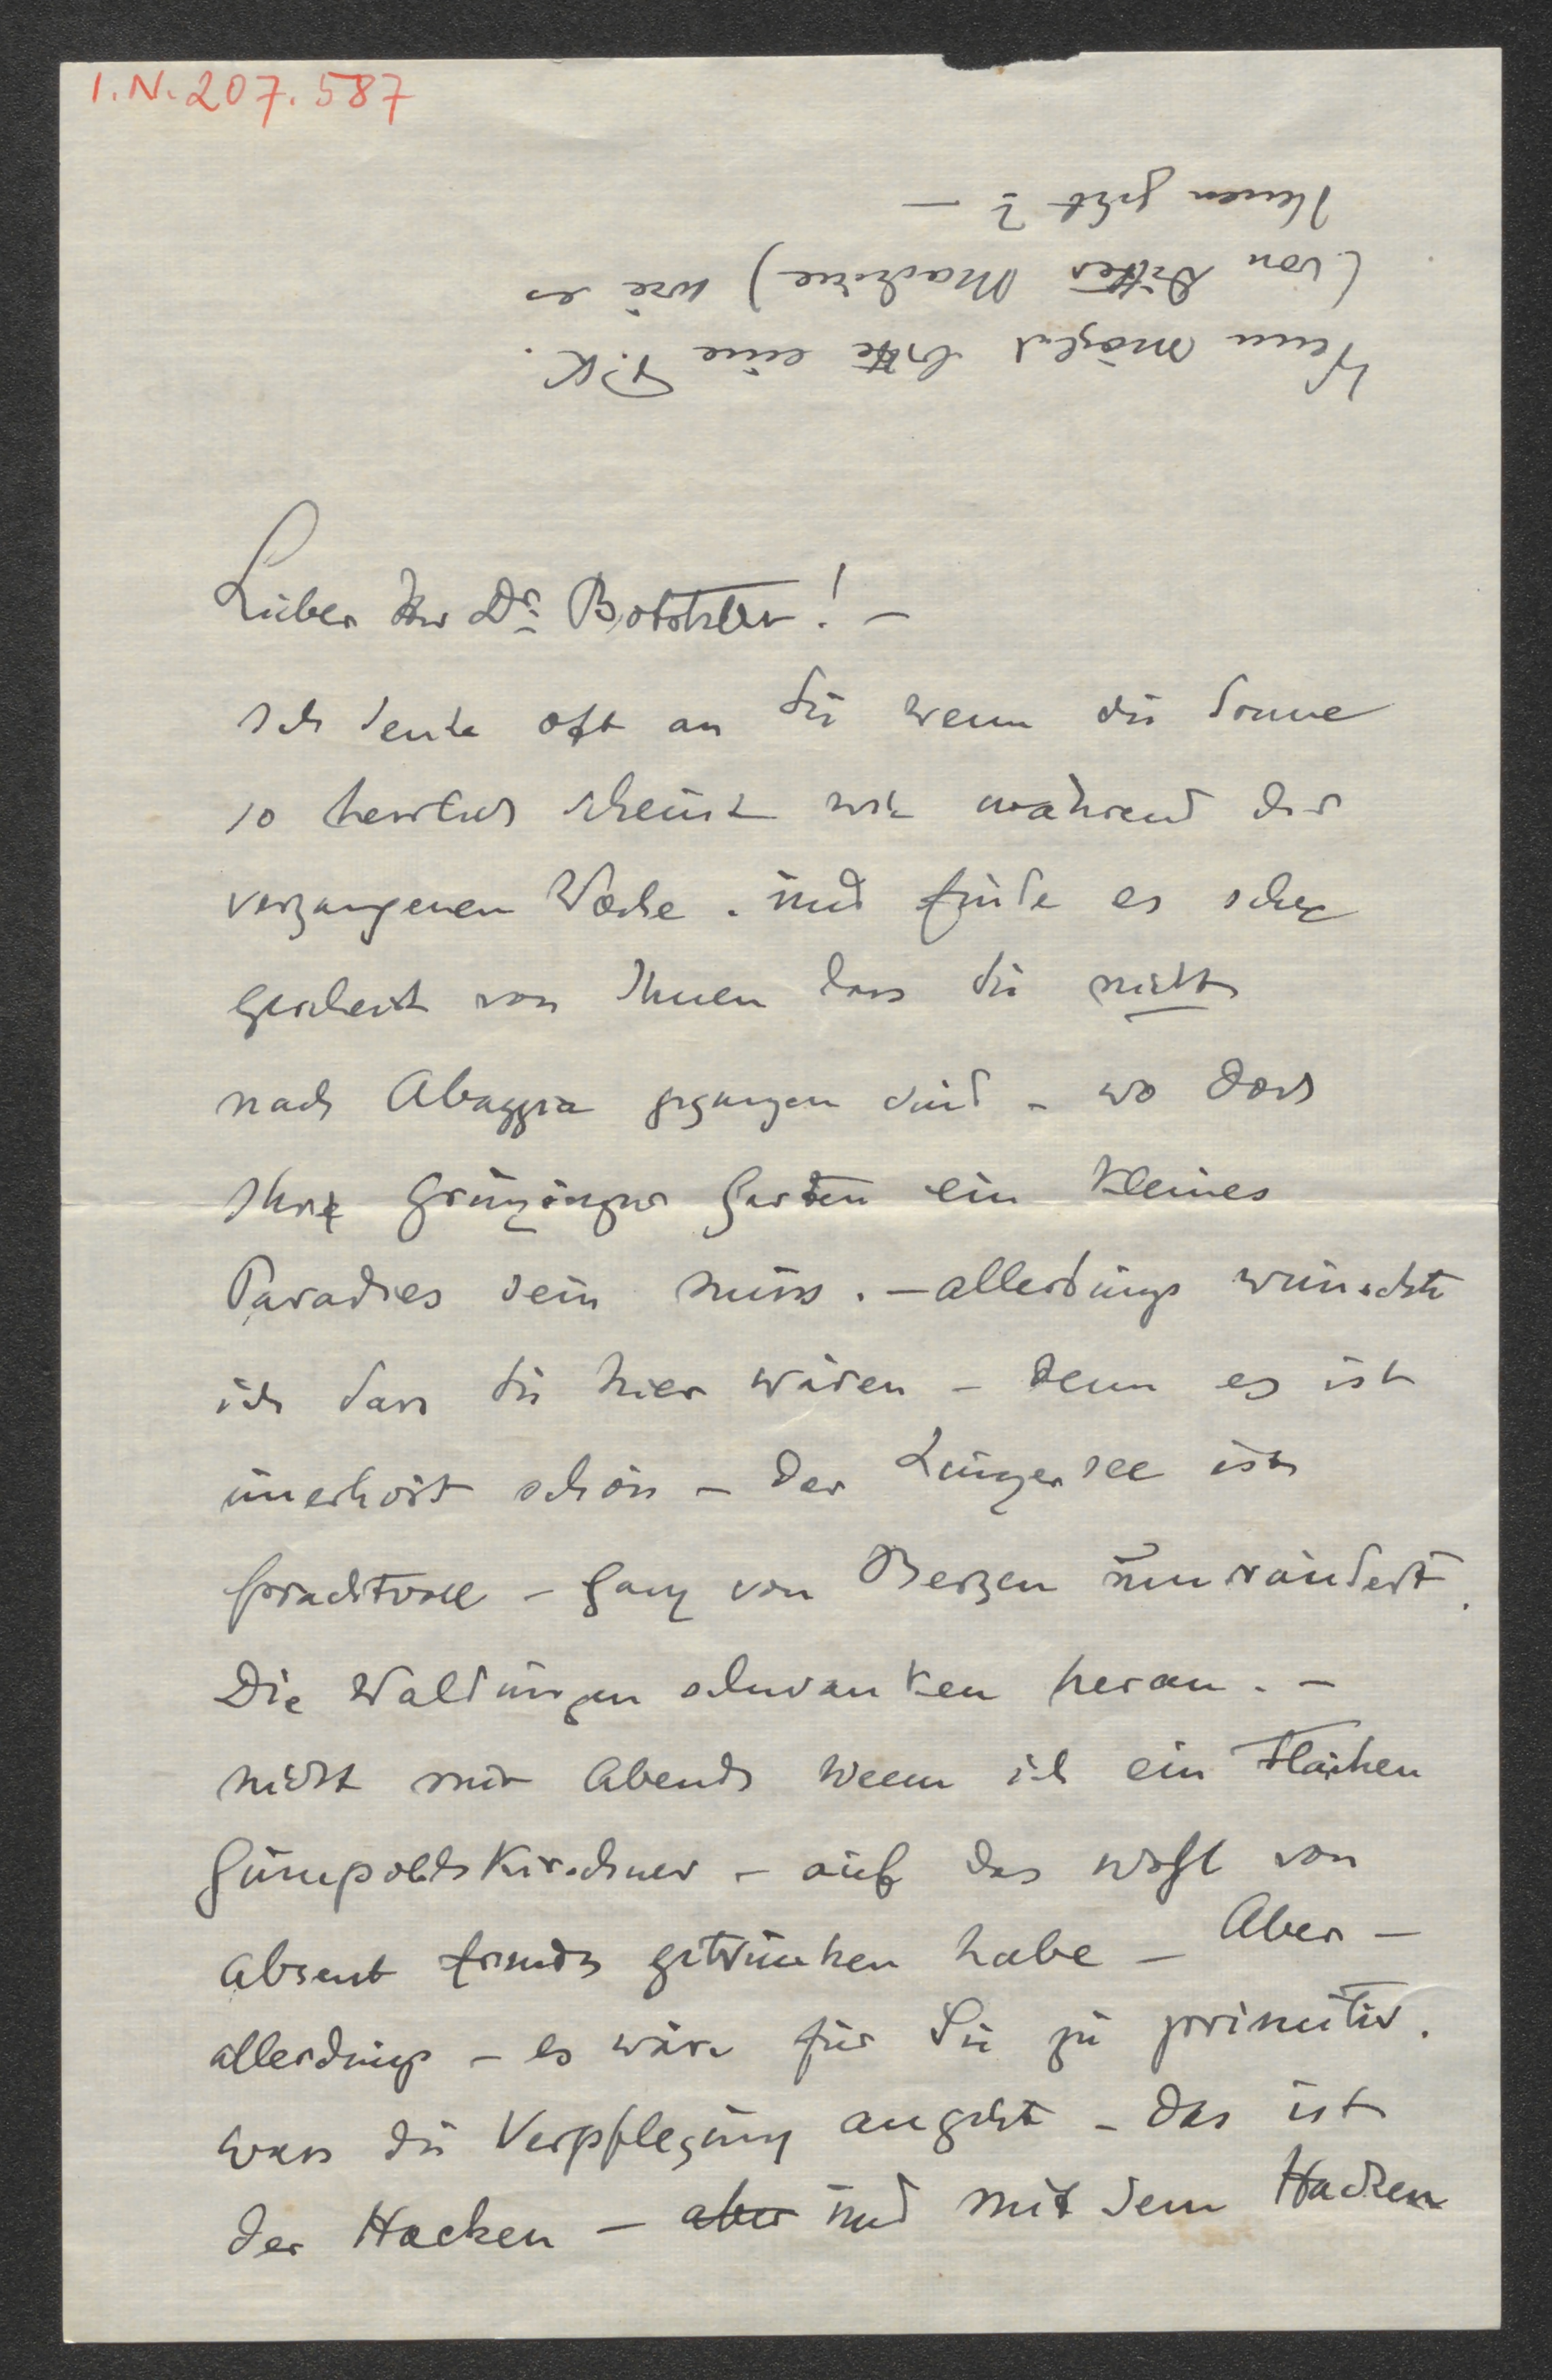 I.N. 207.587
Wenn möglich bitte eine P.K.
(von Ditta's Maschine) wie es
Ihnen geht? —
Lieber Herr Dr. Botstiber! —
Ich denke oft an Sie wenn die Sonne
so herrlich scheint wie während der
vergangenen Woche. und finde es sehr
gescheit von Ihnen dass Sie nicht
nach Abazzia gegangen sind – wo doch
Ihr Grinzinger Garten ein kleines
Paradies sein muss. – allerdings wünschte
ich dass Sie hier wären – denn es ist
unerhört schön – der Lunzersee ist
prachtvoll – ganz von Bergen umrändert.
Die Waldungen schwanken heran. –
nicht nur Abends wenn ich ein Fläschen
Gumpoldskirchner – auf das wohl von
Absent friends getrunken habe – Aber –
allerdings – es wäre für Sie zu primitiv.
was die Verpflegung angeht – das ist
der Hacken – aber und mit dem Hacken